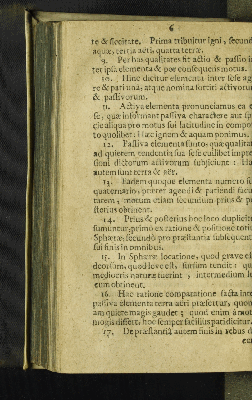 6
te & siccitate. Prima tribuitur igni, secund
aquæ, tertia aëri, quarta terræ.
9. Per has qualitates fit actio & passio in
ter ipsa elementa & per consequens motus.
10. Hinc dicitur elementa inter sese age
re & pati una; atque nomina sortiri activorum
& passivorum.
11. Activa elementa pronunciamus ea e
se, quæ informant passiva charactere aut sp
cie aliqua pro motus sui latitudine in compo
to quolibet: hæc ignem & aquam ponimus.
12. Passiva elementa sunto, quæ qualitat
ad quietem tendentis sua sese cuilibet impre
sioni dictorum activorum subjiciunt: hæc
autem sunt terra & aër.
13. Eadem quoque elementa numero su
quaternario, præter agendi & patiendi facul
tatem, motum etiam secundum prius & po
sterius obtinent.
14. Prius & posterius hoc loco duplicite
sumuntur, primo ex ratione & positione totius
Sphæræ: secundo pro præstantia subsequent
sui finis in omnibus.
15. In Sphæræ locatione, quod grave est
deorsum, quod leve est, sursum tendit: q
mediocris naturæ fuerint, intermedium lo
cum obtinent.
16. Hac ratione comparatione facta inter
passiva elementa terra aëri præfertur, quon
am quiete magis gaudet; quod enim à mot
magis distett, hoc semper facilius patidicitur.
17. De præstantia autem finis in rebus d